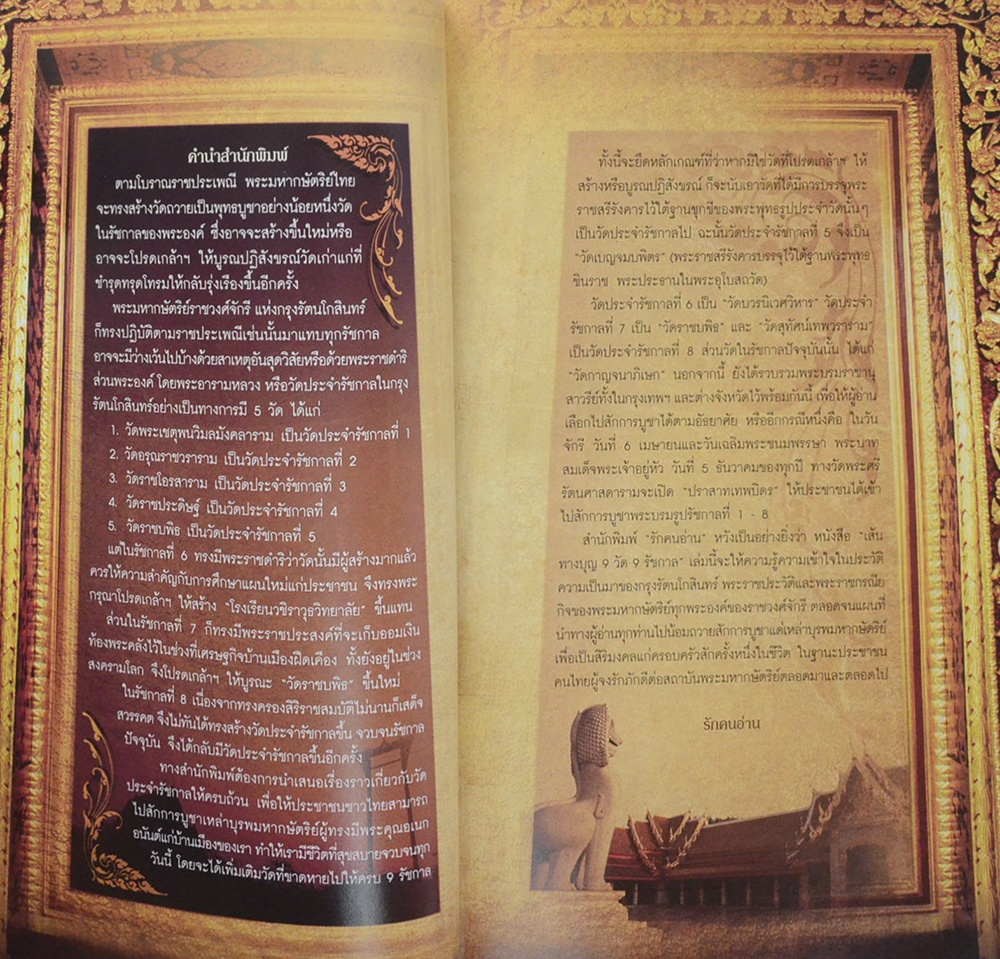 คำนำสำนักพิมพ์
ตามโบราณราชประเพณี พระมหากษัตริย์ไทย
จะทรงสร้างวัดถวายเป็นพุทธบูชาอย่างน้อยหนึ่งวัด
ในรัชกาลของพระองค์ ซึ่งอาจจะสร้างขึ้นใหม่หรือ
อาจจะโปรดเกล้าฯ ให้บูรณปฏิสังขรณ์วัดเก่าแก่ที่
ชำรุดทรุดโทรมให้กลับรุ่งเรืองขึ้นอีกครั้ง
พระมหากษัตริย์ราชวงศ์จักรี แห่งกรุงรัตนโกสินทร์
ก็ทรงปฏิบัติตามราชประเพณีเช่นนั้นมาแทบทุกรัชกาล
อาจจะมีว่างเว้นไปบ้างด้วยสาเหตุอันสุดวิสัยหรือด้วยพระราชดำริ
ส่วนพระองค์ โดยพระอารามหลวง หรือวัดประจำรัชกาลในกรุง
รัตนโกสินทร์อย่างเป็นทางการมี 5 วัด ได้แก่
1. วัดพระเชตุพนวิมลมังคลาราม เป็นวัดประจำรัชกาลที่ 1
2. วัดอรุณราชวราราม เป็นวัดประจำรัชกาลที่ 2
3. วัดราชโอรสาราม เป็นวัดประจำรัชกาลที่ 3
4. วัดราชประดิษฐ์ เป็นวัดประจำรัชกาลที่ 4
5. วัดราชบพิธ เป็นวัดประจำรัชกาลที่ 5
แต่ในรัชกาลที่ 6 ทรงมีพระราชดำริว่าวัดนั้นมีผู้สร้างมากแล้ว
ควรให้ความสำคัญกับการศึกษาแผนใหม่แก่ประชาชน จึงทรงพระ
กรุณาโปรดเกล้าฯ ให้สร้าง "โรงเรียนวชิราวุธวิทยาลัย" ขึ้นแทน
ส่วนในรัชกาลที่ 7 ก็ทรงมีพระราชประสงค์ที่จะเก็บออมเงิน
ท้องพระคลังไว้ในช่วงที่เศรษฐกิจบ้านเมืองฝืดเคือง ทั้งยังอยู่ในช่วง
สงครามโลก จึงโปรดเกล้าฯ ให้บูรณะ "วัดราชบพิธ" ขึ้นใหม่
ในรัชกาลที่ 8 เนื่องจากทรงครองสิริราชสมบัติไม่นานก็เสด็จ
สวรรคต จึงไม่ทันได้ทรงสร้างวัดประจำรัชกาลขึ้น จวบจนรัชกาล
ปัจจุบัน จึงได้กลับมีวัดประจำรัชกาลขึ้นอีกครั้ง
ทางสำนักพิมพ์ต้องการนำเสนอเรื่องราวเกี่ยวกับวัด
ประจำรัชกาลให้ครบถ้วน เพื่อให้ประชาชนชาวไทยสามารถ
ไปสักการบูชาเหล่าบุรพมหากษัตริย์ผู้ทรงมีพระคุณอเนก
อนันต์แก่บ้านเมืองของเรา ทำให้เรามีชีวิตที่สุขสบายจวบจนทุก
วันนี้ โดยจะได้เพิ่มเติมวัดที่ขาดหายไปให้ครบ 9 รัชกาล
ทั้งนี้จะยึดหลักเกณฑ์ที่ว่าหากมิใช่วัดที่โปรดเกล้าฯ ให้
สร้างหรือบูรณปฏิสังขรณ์ ก็จะนับเอาวัดที่ได้มีการบรรจุพระ
ราชสรีรังคารไว้ใต้ฐานชุกชีของพระพุทธรูปประจำวัดนั้นๆ
เป็นวัดประจำรัชกาลไป ฉะนั้นวัดประจำรัชกาลที่ 5 จึงเป็น
"วัดเบญจมบพิตร" (พระราชสรีรังคารบรรจุไว้ใต้ฐานพระพุทธ
ชินราช พระประธานในพระอุโบสถวัด)
วัดประจำรัชกาลที่ 6 เป็น "วัดบวรนิเวศวิหาร" วัดประจำ
รัชกาลที่ 7 เป็น "วัดราชบพิธ" และ "วัดสุทัศน์เทพวราราม"
เป็นวัดประจำรัชกาลที่ 8 ส่วนวัดในรัชกาลปัจจุบันนั้น ได้แก่
"วัดกาญจนาภิเษก" นอกจากนี้ ยังได้รวบรวมพระบรมราชานุ
สาวรีย์ทั้งในกรุงเทพฯ และต่างจังหวัดไว้พร้อมกันนี้ เพื่อให้ผู้อ่าน
เลือกไปสักการบูชาได้ตามอัธยาศัย หรืออีกกรณีหนึ่งคือ ในวัน
จักรี วันที่ 6 เมษายนและวันเฉลิมพระชนมพรรษา พระบาท
สมเด็จพระเจ้าอยู่หัว วันที่ 5 ธันวาคมของทุกปี ทางวัดพระศรี
รัตนศาสดารามจะเปิด "ปราสาทเทพบิดร" ให้ประชาชนได้เข้า
ไปสักการบูชาพระบรมรูปรัชกาลที่ 1 - 8
สำนักพิมพ์ "รักคนอ่าน" หวังเป็นอย่างยิ่งว่า หนังสือ "เส้น
ทางบุญ 9 วัด 9 รัชกาล" เล่มนี้จะให้ความรู้ความเข้าใจในประวัติ
ความเป็นมาของกรุงรัตนโกสินทร์ พระราชประวัติและพระราชกรณีย
กิจของพระมหากษัตริย์ทุกพระองค์ของราชวงศ์จักรี ตลอดจนแผนที่
นำทางผู้อ่านทุกท่านไปน้อมถวายสักการบูชาแด่เหล่าบุรพมหากษัตริย์
เพื่อเป็นสิริมงคลแก่ครอบครัวสักครั้งหนึ่งในชีวิต ในฐานะประชาชน
คนไทยผู้จงรักภักดีต่อสถาบันพระมหากษัตริย์ตลอดมาและตลอดไป
รักคนอ่าน